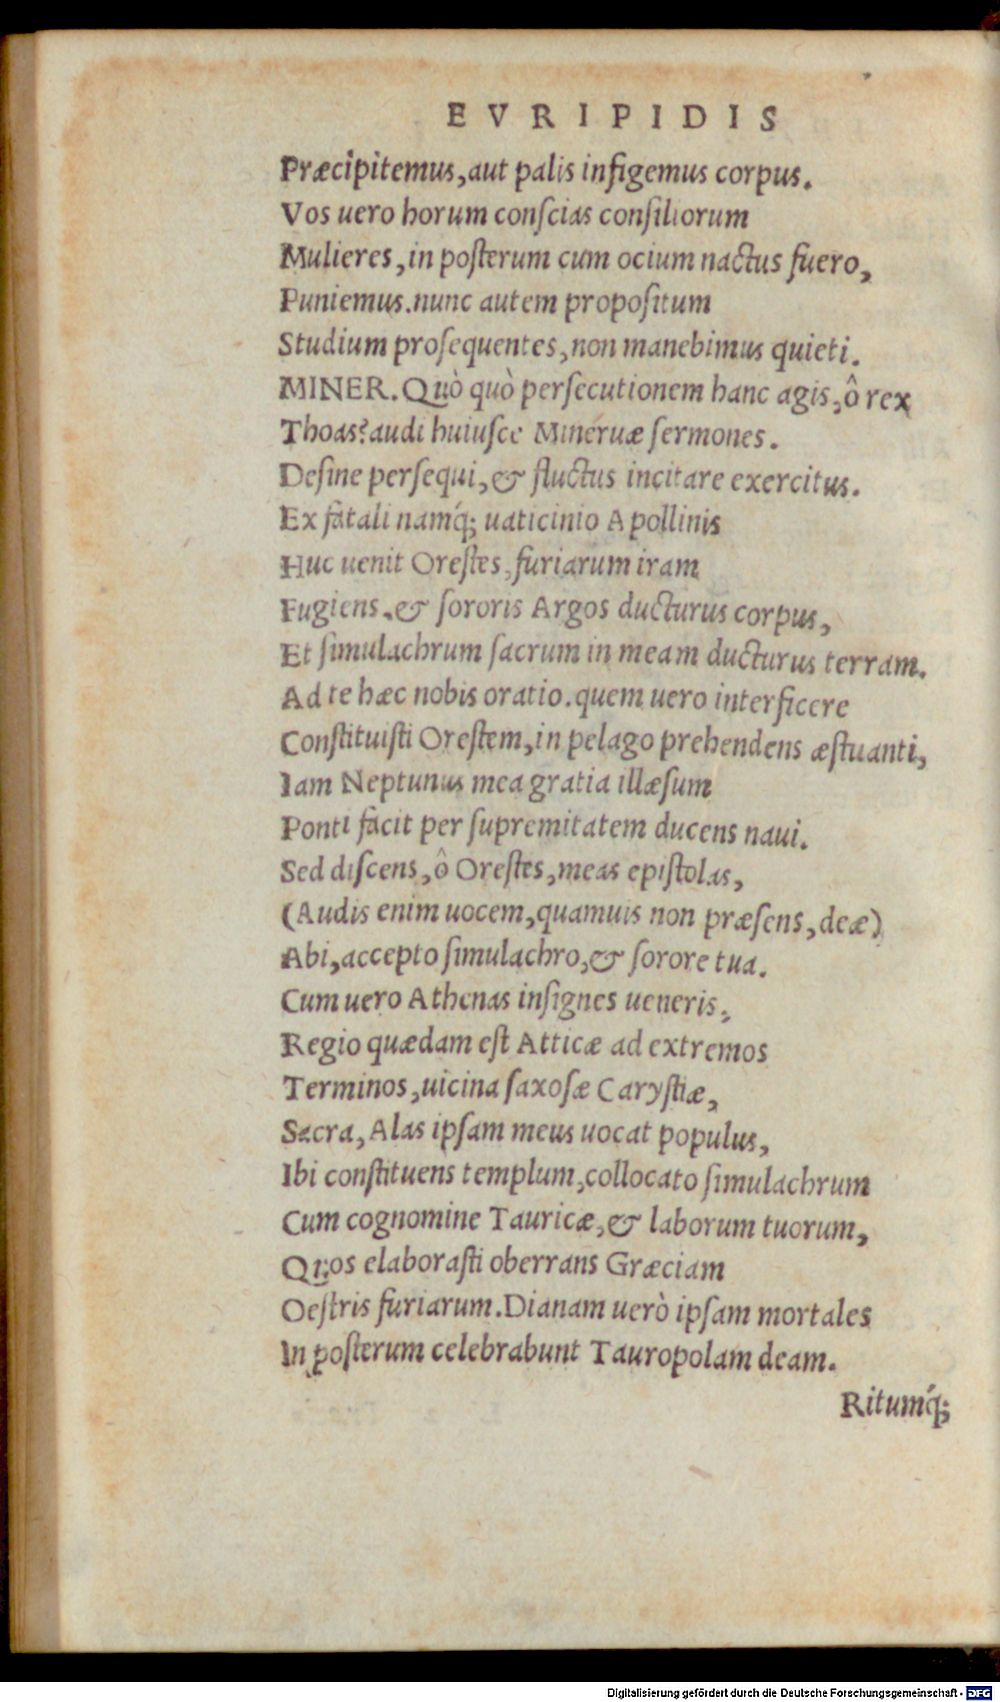 EVRIPIDIS
Præcipitemus, aut palis infigemus corpus.
Vos uero horum conſcias conſiliorum
Mulieres, in poſterum cum ocium nactus fuero,
Puniemus. nunc autem propoſitum
Studium proſequentes, non manebimus quieti.
MINER. Quò quò perſecutionem hanc agis, ô rex
Thoas? audi huiuſce Mineruæ ſermones.
Deſine perſequi, & fluctus incitare exercitus.
Ex fatali namq́; uaticinio Apollinis
Huc uenit Oreſtes, furiarum iram
Fugiens, & ſororis Argos ducturus corpus,
Et ſimulachrum ſacrum in meam ducturus terram.
Ad te hæc nobis oratio. quem uero interficere
Conſtituiſti Oreſtem, in pelago prehendens æſtuanti,
Iam Neptunus mea gratia illæſum
Ponti facit per ſupremitatem ducens naui.
Sed diſcens, ô Oreſtes, meas epiſtolas,
(Audis enim uocem, quamuis non præſens, deæ)
Abi, accepto ſimulachro, & ſorore tua.
Cum uero Athenas inſignes ueneris,
Regio quædam eſt Atticæ ad extremos
Terminos, uicina ſaxoſæ Caryſtiæ,
Sacra, Alas ipſam meus uocat populus,
Ibi conſtituens templum, collocato ſimulachrum
Cum cognomine Tauricæ, & laborum tuorum,
Quos elaboraſti oberrans Græciam
Oeſtris furiarum. Dianam uerò ipſam mortales
In poſterum celebrabunt Tauropolam deam.
Ritumq́;
Digitalisierung gefördert durch die Deutsche Forschungsgemeinschaft - DFG